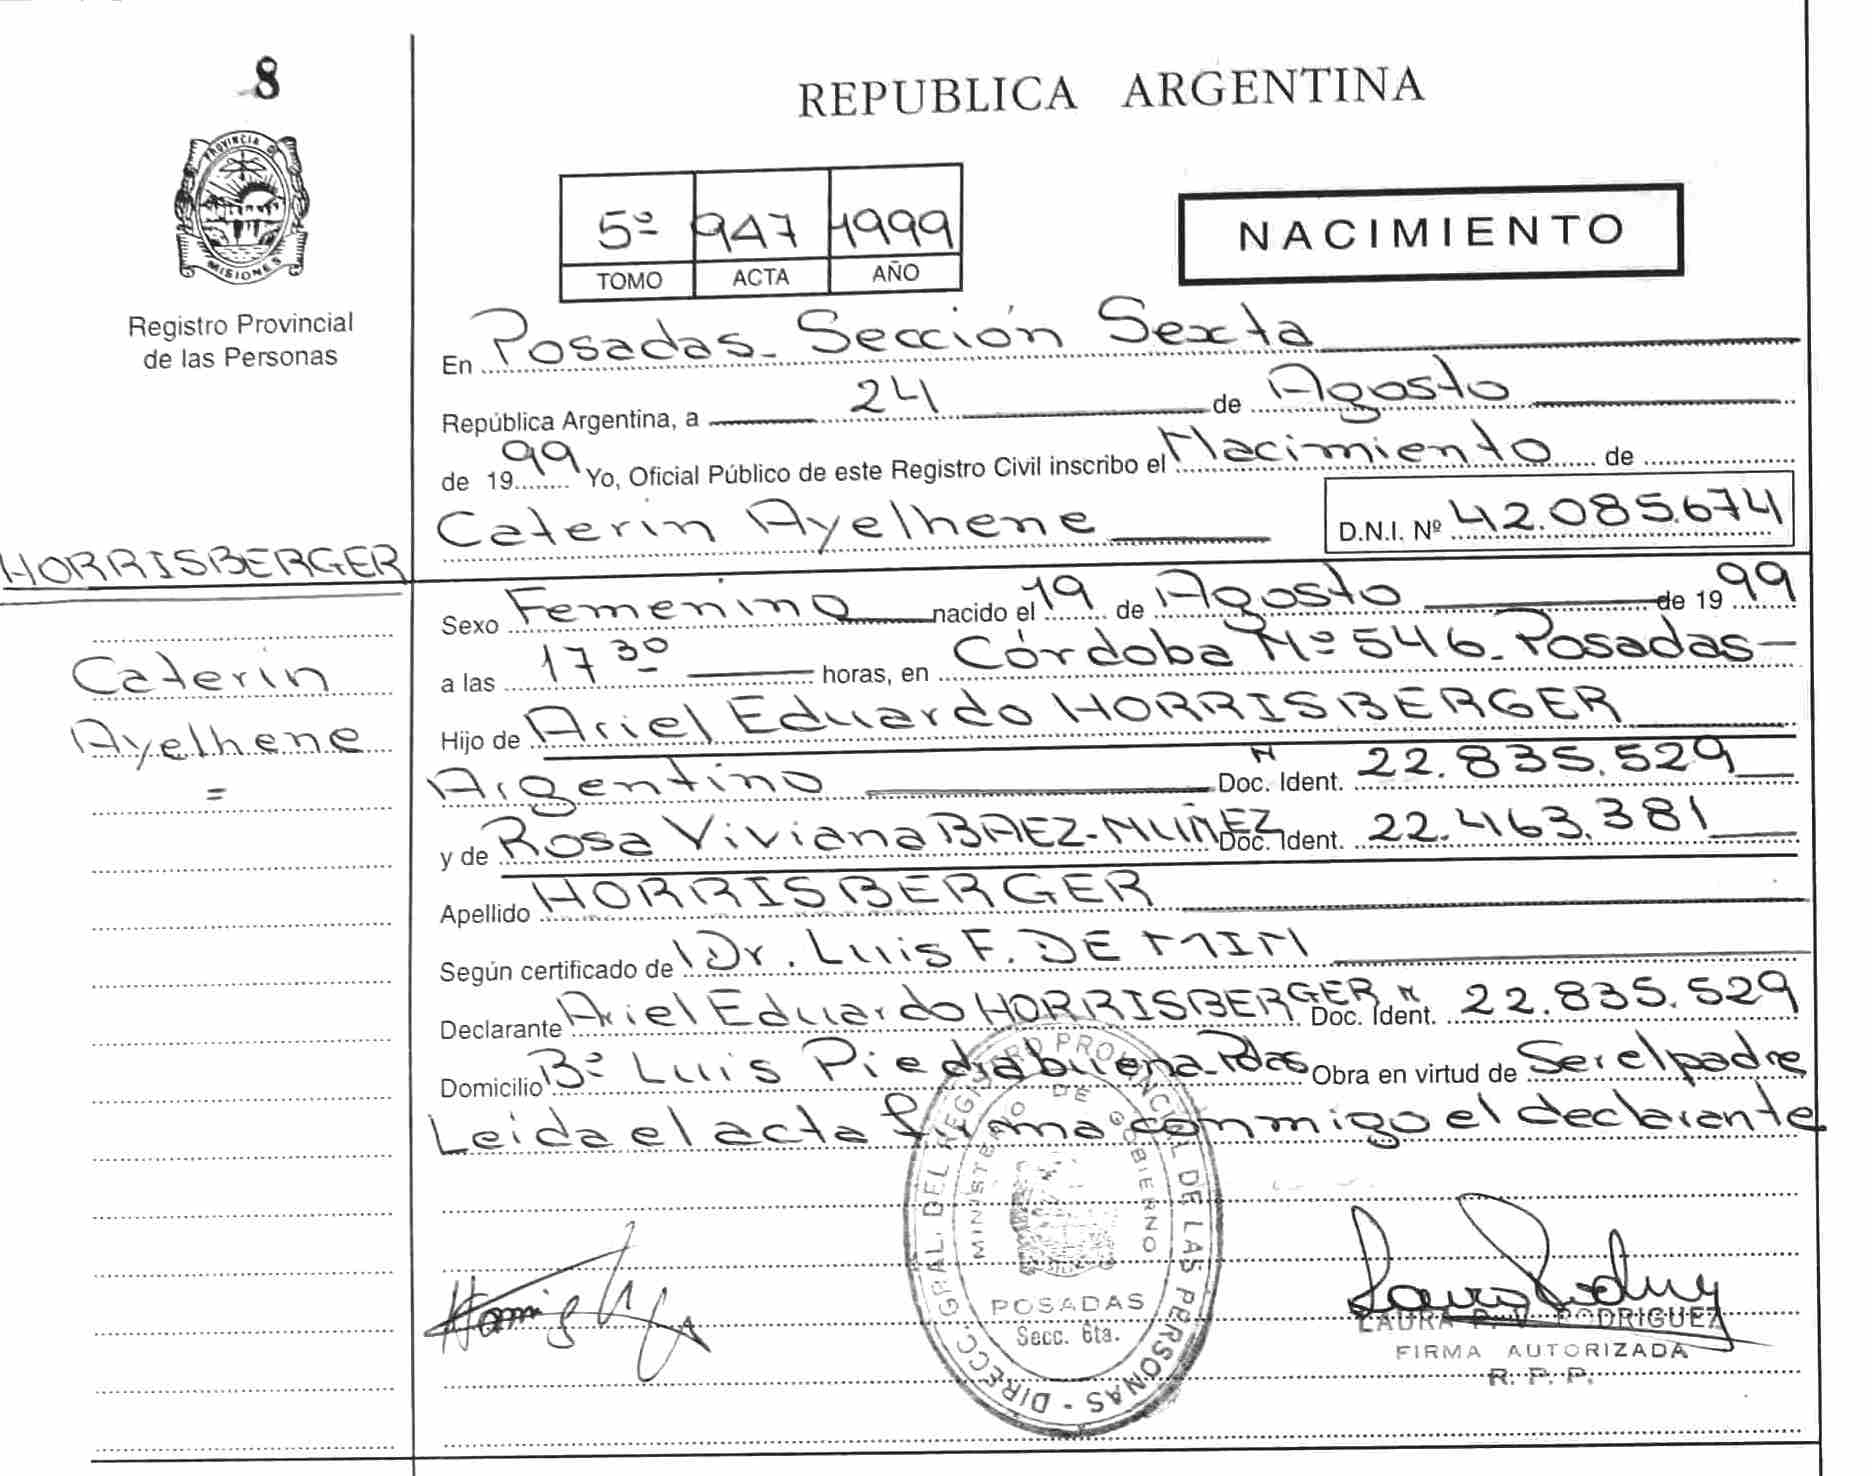 8
PROVINCIA DE
MISIONES
Registro Provincial
de las Personas
HORRISBERGER
Caterin
Ayelhene
=
REPUBLICA ARGENTINA
5º 947 1999
TOMO ACTA AÑO
NACIMIENTO
En Posadas - Sección Sexta
República Argentina, a 24 de Agosto
de 1999 Yo, Oficial Público de este Registro Civil inscribo el Nacimiento de
Caterin Ayelhene D.N.I. Nº 42.085.674
Sexo Femenino nacido el 19 de Agosto de 1999
a las 17 30 horas, en Córdoba Nº 546 - Posadas -
Hijo de Ariel Eduardo HORRISBERGER
Argentino Doc. Ident. N 22.835.529
y de Rosa Viviana BAEZ - MUÑEZ Doc. Ident. 22.463.381
Apellido HORRISBERGER
Según certificado de Dr. Luis F. DE MIN
Declarante Ariel Eduardo HORRISBERGER Doc. Ident. N 22.835.529
Domicilio Bº Luis Piedrabuena - Pdas Obra en virtud de Ser el padre
Leida el acta firma conmigo el declarante
DIRECC. GRAL. DEL REGISTRO PROVINCIAL DE LAS PERSONAS -
MINISTERIO DE GOBIERNO
POSADAS
Secc. 6ta.
LAURA P. V. RODRIGUEZ
FIRMA AUTORIZADA
R. P. P.